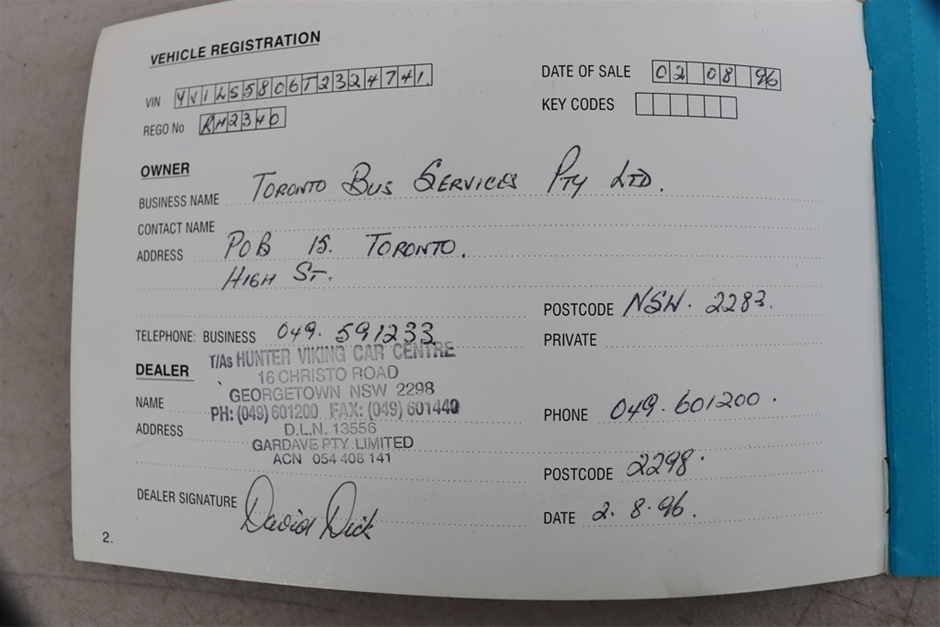 VEHICLE REGISTRATION
VIN YV1LS5806T2324741 DATE OF SALE 02 08 96
REGO No RH2340 KEY CODES
OWNER
BUSINESS NAME TORONTO BUS SERVICES PTY LTD.
CONTACT NAME
ADDRESS POB 15. TORONTO.
HIGH ST.
POSTCODE NSW. 2283.
TELEPHONE: BUSINESS 049. 591233 PRIVATE
T/As HUNTER VIKING CAR CENTRE
DEALER 16 CHRISTO ROAD
GEORGETOWN NSW 2298
NAME PH: (049) 601200 FAX: (049) 601440 PHONE 049. 601200.
ADDRESS D.L.N. 13556
GARDAVE PTY. LIMITED
ACN 054 408 141 POSTCODE 2298.
DEALER SIGNATURE David Dick DATE 2. 8. 96.
2.